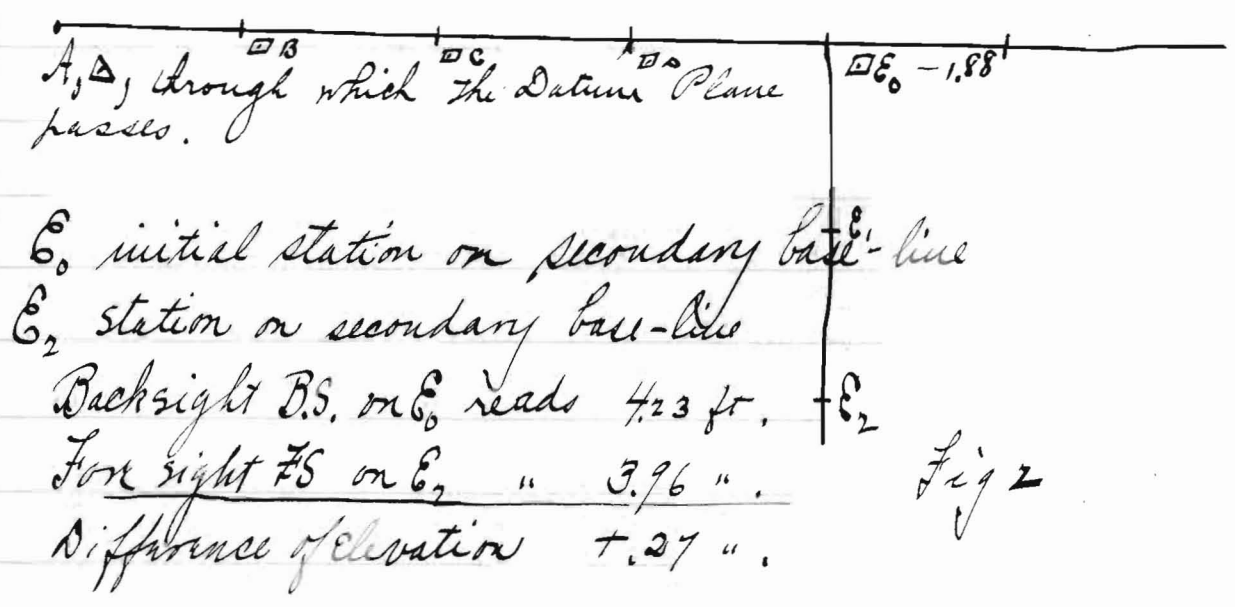 ⊡B ⊡C ⊡D ⊡E₀ -1.88
A, △, through which the Datum Plane
passes.
E₁
E₀ initial station on secondary base-line
E₂ station on secondary base-line
Backsight B.S. on E₀ reads 4.23 ft. E₂
Fore sight FS on E₂ " 3.96 ".
Fig 2
Difference of elevation +.27 ".